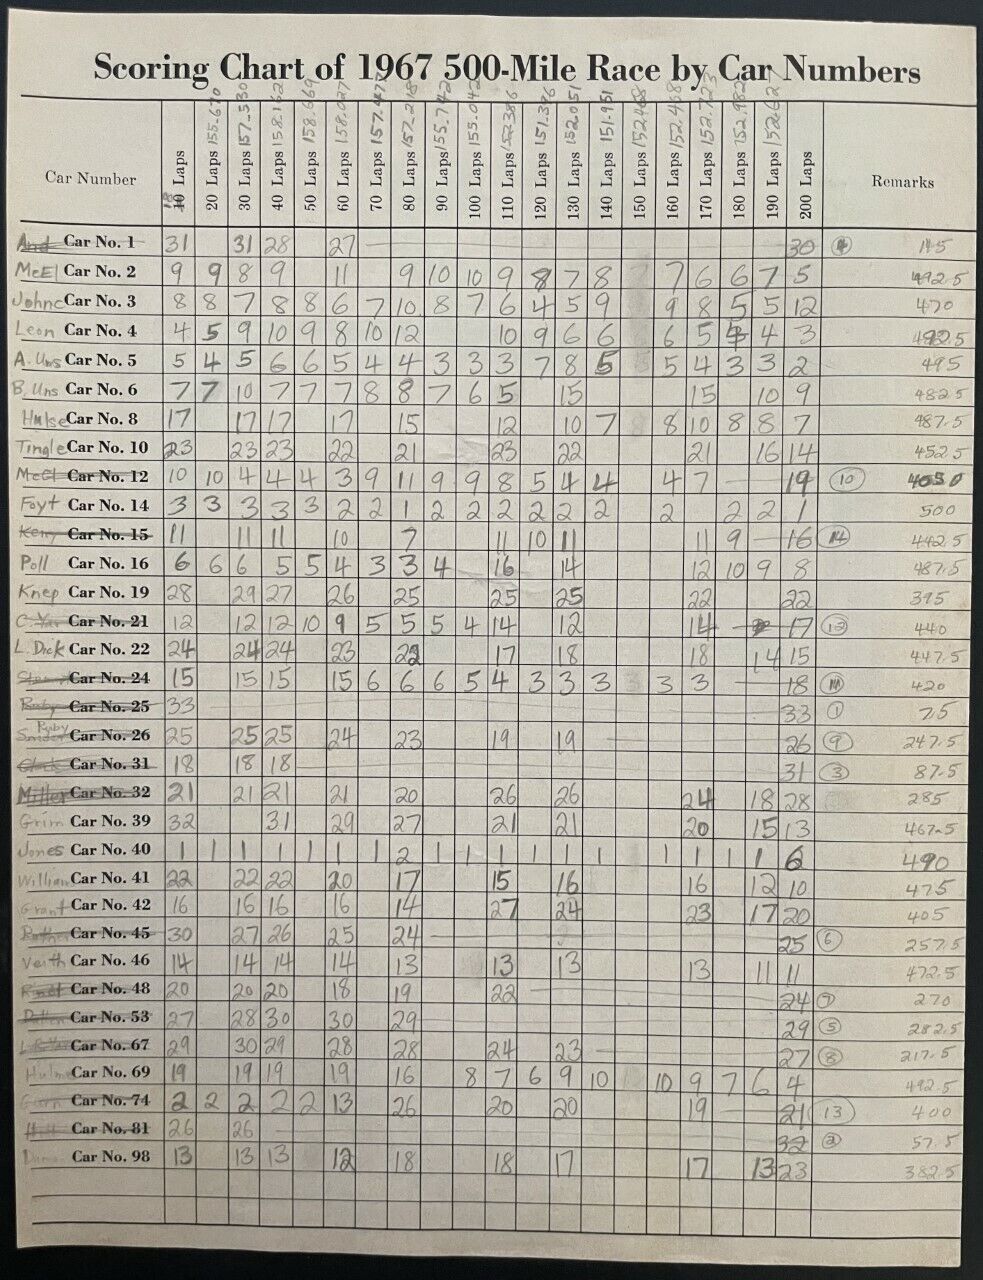 Scoring Chart of 1967 500-Mile Race by Car Numbers
Car Number 10 Laps 18 20 Laps 155.670 30 Laps 157.530 40 Laps 158.162 50 Laps 158.669 60 Laps 158.027 70 Laps 157.477 80 Laps 157.218 90 Laps 155.742 100 Laps 155.042 110 Laps 152.386 120 Laps 151.396 130 Laps 152.051 140 Laps 151.951 150 Laps 152.468 160 Laps 152.458 170 Laps 152.723 180 Laps 152.982 190 Laps 152.627 200 Laps Remarks
And Car No. 1 31 31 28 27 30 4 145
McEl Car No. 2 9 9 8 9 11 9 10 10 9 8 7 8 7 7 6 6 7 5 492.5
Johnc Car No. 3 8 8 7 8 8 6 7 10 8 7 6 4 5 9 9 8 5 5 12 470
Leon Car No. 4 4 5 9 10 9 8 10 12 10 9 6 6 6 5 4 4 3 492.5
A. Uns Car No. 5 5 4 5 6 6 5 4 4 3 3 3 7 8 5 5 4 3 3 2 495
B. Uns Car No. 6 7 7 10 7 7 7 8 8 7 6 5 15 15 10 9 482.5
Hulse Car No. 8 17 17 17 17 15 12 10 7 8 10 8 8 7 487.5
Tingle Car No. 10 23 23 23 22 21 23 22 21 16 14 452.5
McCl Car No. 12 10 10 4 4 4 3 9 11 9 9 8 5 4 4 4 7 19 10
Foyt Car No. 14 3 3 3 3 3 2 2 1 2 2 2 2 2 2 2 2 2 1 500
Keny Car No. 15 11 11 11 10 7 11 10 11 11 9 16 14 442.5
Poll Car No. 16 6 6 6 5 5 4 3 3 4 16 14 12 10 9 8 487.5
Knep Car No. 19 28 29 27 26 25 25 25 22 22 395
C. Yar Car No. 21 12 12 12 10 9 5 5 5 4 14 12 14 17 12 440
L. Dick Car No. 22 24 24 24 23 22 17 18 18 14 15 447.5
Car No. 24 15 15 15 15 6 6 6 5 4 3 3 3 3 3 18 11 420
Ruby Car No. 25 33 33 1 7.5
Ruby
Car No. 26 25 25 25 24 23 19 19 26 9 247.5
Car No. 31 18 18 18 31 3 87.5
Miller Car No. 32 21 21 21 21 20 26 26 24 18 28 285
Grim Car No. 39 32 31 29 27 21 21 20 15 13 467.5
Jones Car No. 40 1 1 1 1 1 1 1 2 1 1 1 1 1 1 1 1 1 1 6 490
William Car No. 41 22 22 22 20 17 15 16 16 12 10 475
Grant Car No. 42 16 16 16 16 14 27 24 23 17 20 405
Ruther Car No. 45 30 27 26 25 24 25 6 257.5
Veith Car No. 46 14 14 14 14 13 13 13 13 11 11 472.5
Rindt Car No. 48 20 20 20 18 19 22 24 7 270
Car No. 53 27 28 30 30 29 29 5 282.5
Car No. 67 29 30 29 28 28 24 23 27 8 217.5
Hulme Car No. 69 19 19 19 19 16 8 7 6 9 10 10 9 7 6 4 492.5
Car No. 74 2 2 2 2 2 13 26 20 20 19 21 13 400
Car No. 81 26 26 32 2 57.5
Car No. 98 13 13 13 12 18 18 17 17 13 23 382.5